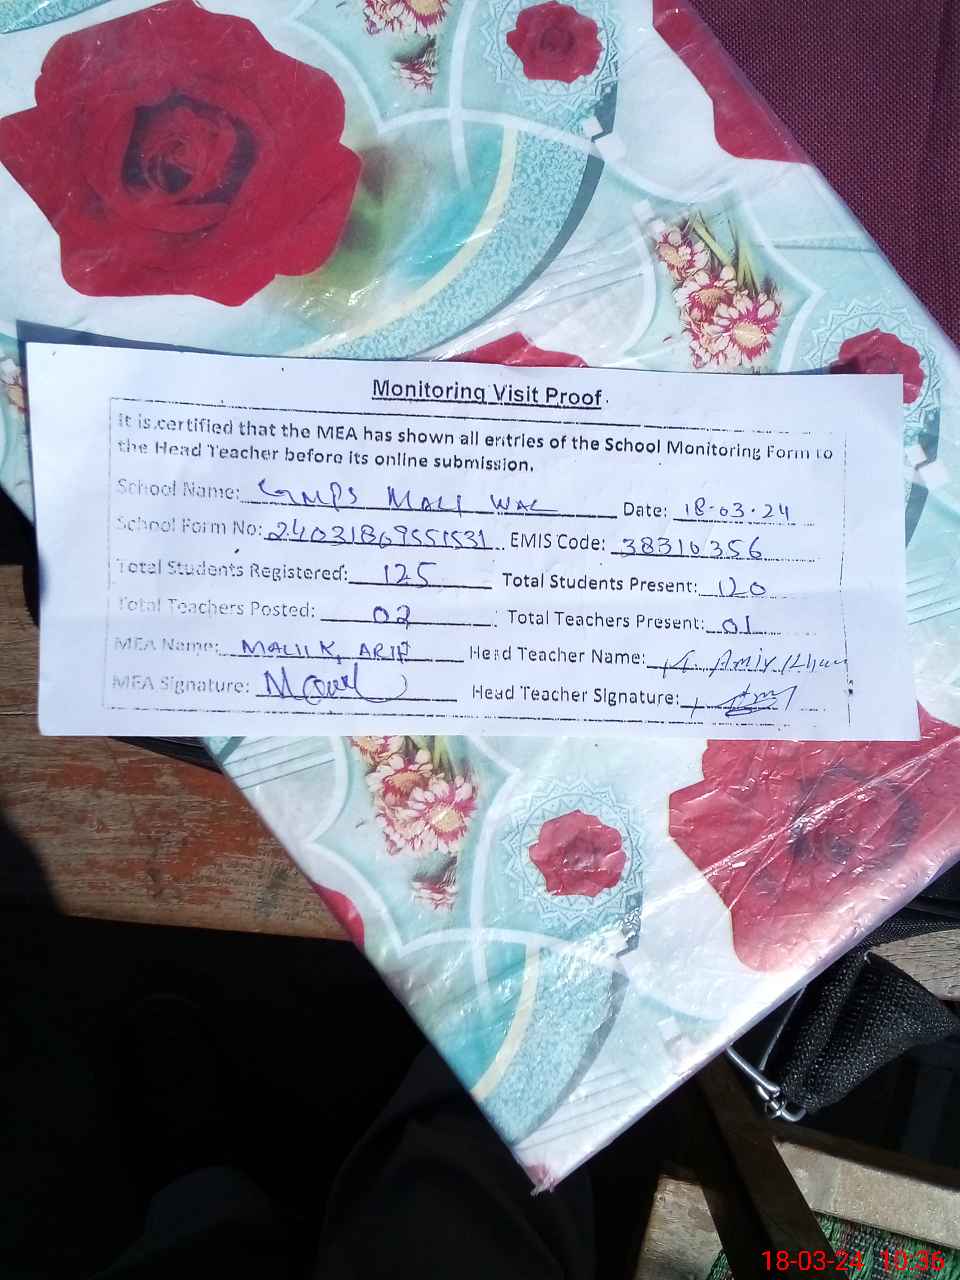 Monitoring Visit Proof.
It is certified that the MEA has shown all entries of the School Monitoring Form to
the Head Teacher before its online submission.
School Name: GMPS MALI WAL Date: 18-03-24
School Form No: EMIS Code: 38310356
Total Students Registered: 125 Total Students Present: 120
Total Teachers Posted: 02 Total Teachers Present: 01
MEA Name: MALIK ARIF Head Teacher Name: Amir Khan
MEA Signature: Head Teacher Signature:
18-03-24 10:36